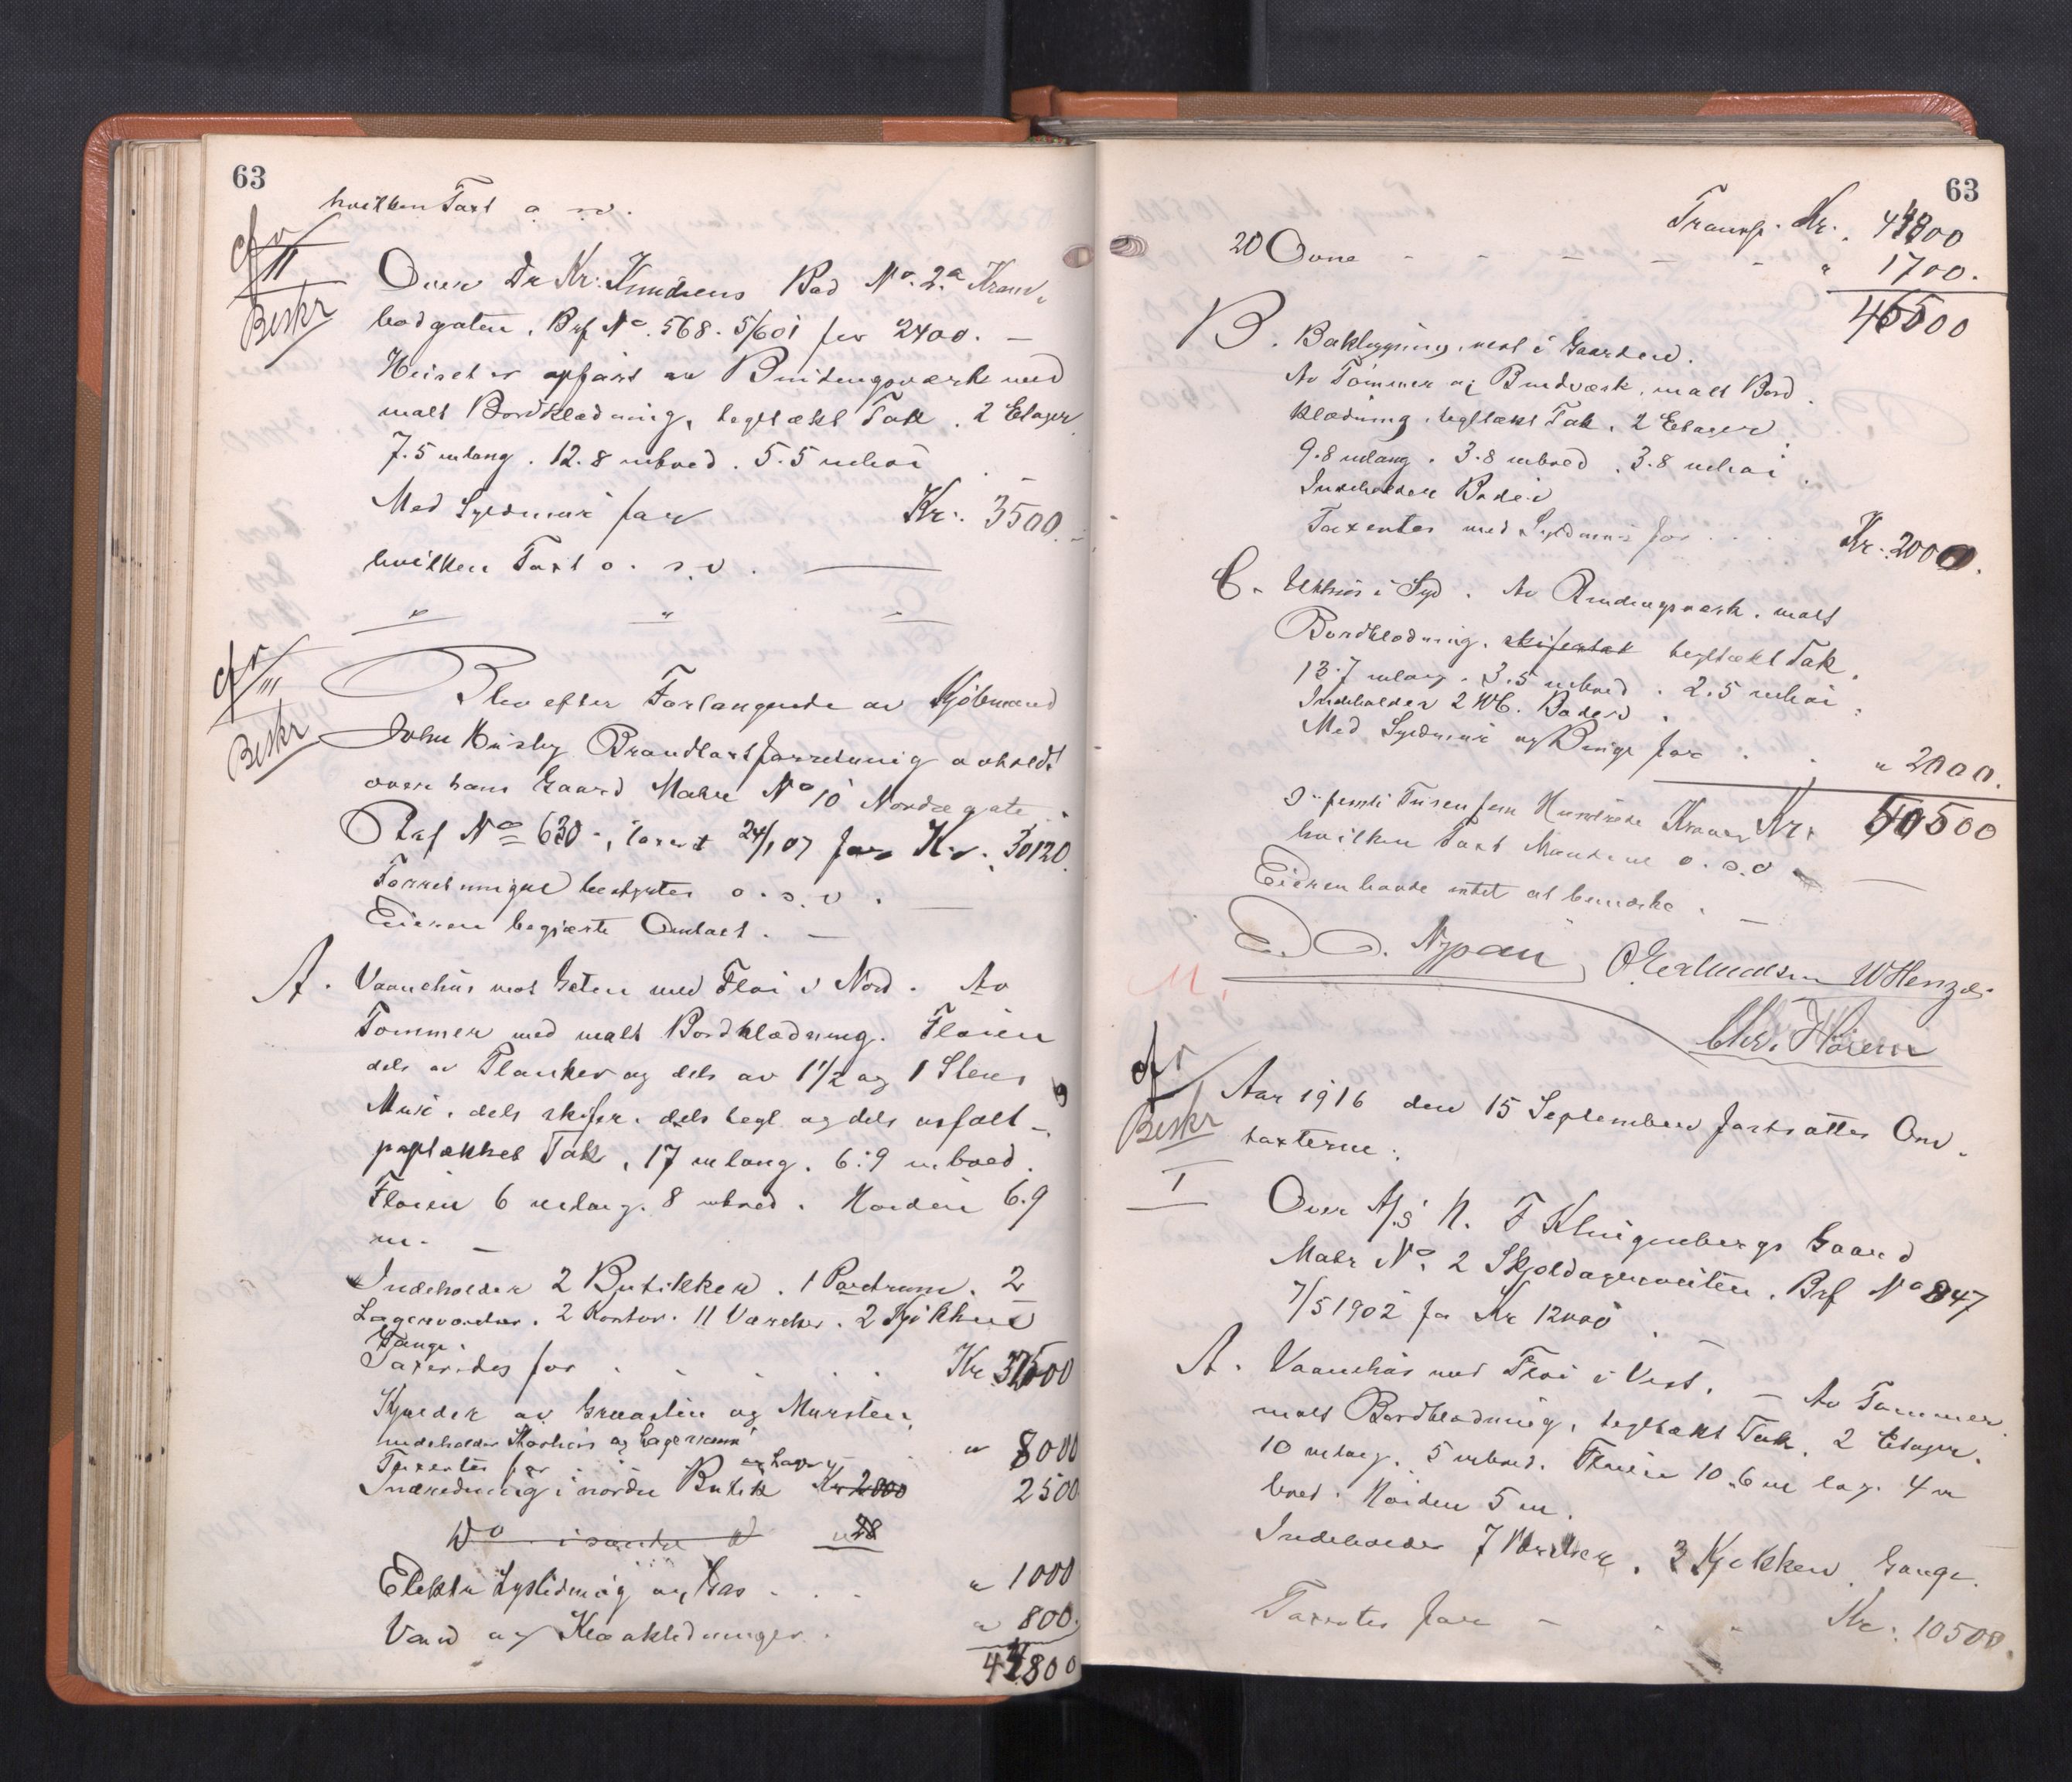 63
hvilken Taxt o. s. v.
cfr
II
Beskr
Over Dr Kr: Knudsens Bod No. 2a Kram-
bodgaten, Brf No. 568. 5/6 01 for 2400. —
Huset er opført av Bindingsverk med
malt Bordklædning, tegltækt Tak. 2 Etager
7.5 m lang. 12.8 m bred. 5.5 m høi
Med Syldmur for Kr. 3500.
hvilken Taxt o. s. v. —
" " "
cfr
III
Beskr
Blev efter Forlangende av Kjøbmand
John Busby Brandtaxtforretning avholdt
over hans Gaard Matr No 10 Nordregate.
Brf No 630, taxert 24/1 07 for Kr. 30120.
Forretningen bestyrtes o. s. v. —
Eieren begjærte Omtaxt. —
A. Vaanehus mot Gaten med Fløi i Nord. Av
Tømmer med malt Bordklædning. Fløien
dels av Planker og dels av 1 1/2 og 1 Stens
Mur. dels skifer. dels tegl og dels asfalt-
paptækket Tak, 17 m lang. 6.9 m bred.
Fløien 6 m lang. 8 m bred. Høiden 6.9
m. —
Indeholder 2 Butikker. 1 Portrum. 2
Lagerværelser. 2 Kontor. 11 Værelser. 2 Kjøkken
Gange.
Taxertes for . . . . . Kr 32500
Kjælder av Graasten og Mursten,
indeholder og Lagerrum
Taxertes for . . " 8000
og Lager
Indredning i nordre Butik Kr 2000 2500
Do i søndre Do
Elektr Lysledning og Gas . . . " 1000
Vand og Kloakledninger . " 800.
44800
63
Transp. Kr. 44800
20 Ovne - - - - - " 1700.
46500
B. Bakbygning vest i Gaarden.
Av Tømmer og Bindverk, malt Bord-
klædning, tegltækt Tak, 2 Etager
9.8 m lang. 3.8 m bred. 3.8 m høi.
Indeholder Boder
Taxertes med Syldmur for . . . Kr. 2000.
C. Uthus i Syd. Av Bindingsverk. malt
Bordklædning. skifertak tegltækt Tak.
13.7 m lang. 3.5 m bred. 2.5 m høi.
Indeholder 2 WC. Boder.
Med Syldmur og Binge for . . " 2000.
Er femti Tusen fem Hundrede Kroner Kr. 50500
hvilken Taxt Mændene o. s. v —
Eieren havde intet at bemærke. —
E. O. Nypan, O. Gulliksen W Henzel
Chr. Thorem
M.
cfr
Beskr
Aar 1916 den 15 September fortsattes Om-
taxterne.
I
Over A/S N. F Klingenbergs Gaard
Matr No. 2 Skjoldagerveiten. Brf No 847
7/5 1902 for Kr 12000.
A. Vaanehus med Fløi i Vest. — Av Tømmer.
malt Bordklædning, tegltækt Tak, 2 Etager.
10 m lang. 5 m bred. Fløien 10.6 m lang. 4 m
bred. Høiden 5 m.
Indeholder 7 Værelser, 3 Kjøkken. Gange.
Taxertes for - . . Kr. 10500.